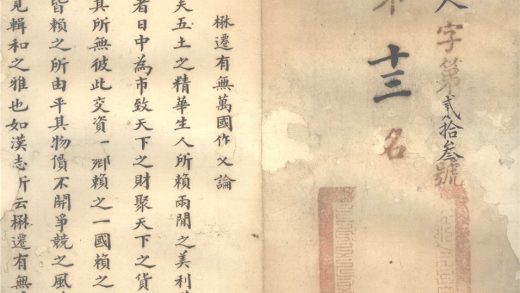 字第貳拾叁號
十三名
楙遷有無萬國作乂論
五土之精華生人所賴兩閒之美利
者日中為市致天下之財聚天下之貨
其所無彼此交資一鄉賴之一國賴之
皆賴之所由平其物價不開爭競之風
見輯和之雅也如漢志所云楙遷有無